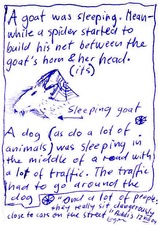 A goat was sleeping. Mean-
while a spider started to
build his net between the
goat's horn & her head.
(its)
Sleeping goat
A dog (as do a lot of
animals) was sleeping in
the middle of a road with
a lot of traffic. The traffic
had to go around the
dog
"and a lot of people
they really sit dangerously
close to cars on the street"